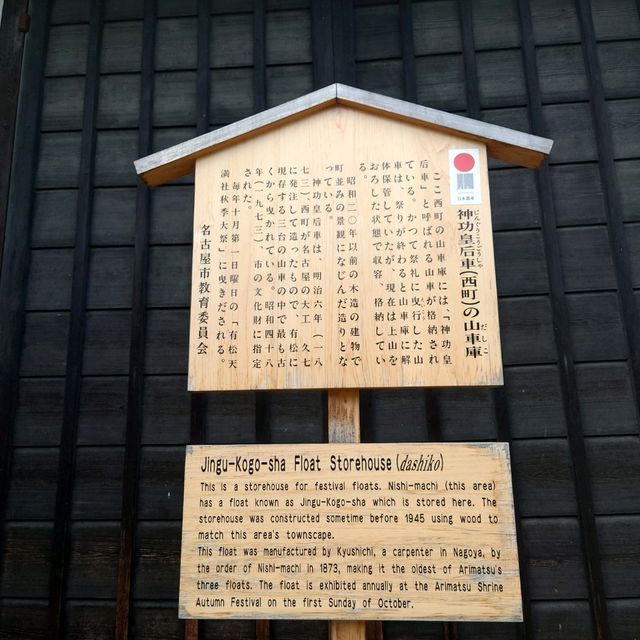 日本遺産
神功皇后車(西町)の山車庫
じんぐうこうごうしゃ
だしこ
ここ西町の山車庫には「神功皇
后車」と呼ばれる山車が格納され
ている。かつて祭礼に曳行した山
車は、祭りが終わると山車庫に解
体保管していたが、現在は上山を
おろした状態で収容、格納してい
る。
昭和二〇年以前の木造の建物で
町並みの景観になじんだ造りとな
っている。
神功皇后車は、明治六年(一八
七三)、西町が名古屋の大工 久七
に発注して造ったもので、有松に
現存する三台の山車の中で最も古
くから曳かれている。昭和四十八
年(一九七三)、市の文化財に指定
された。
毎年十月第一日曜日の「有松天
満社秋季大祭」に曳きだされる。
名古屋市教育委員会
Jingu-Kogo-sha Float Storehouse (dashiko)
This is a storehouse for festival floats. Nishi-machi (this area)
has a float known as Jingu-Kogo-sha which is stored here. The
storehouse was constructed sometime before 1945 using wood to
match this area's townscape.
This float was manufactured by Kyushichi, a carpenter in Nagoya, by
the order of Nishi-machi in 1873, making it the oldest of Arimatsu's
three floats. The float is exhibited annually at the Arimatsu Shrine
Autumn Festival on the first Sunday of October.